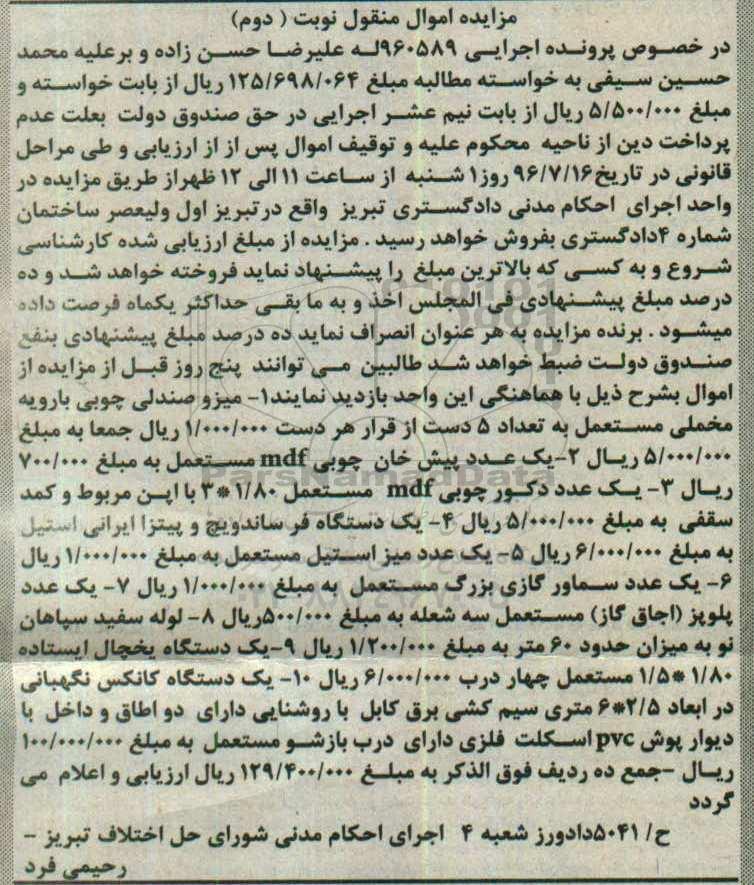 مزایده اموال منقول نوبت ( دوم)
در خصوص پرونده اجرایی ۹۶۰۵۸۹له علیرضا حسن زاده و برعلیه محمد
حسین سیفی به خواسته مطالبه مبلغ ۱۲۵/۶۹۸/۰۶۴ ریال از بابت خواسته و
مبلغ ۵/۵۰۰/۰۰۰ ریال از بابت نیم عشر اجرایی در حق صندوق دولت بعلت عدم
پرداخت دین از ناحیه محکوم علیه و توقیف اموال پس از از ارزیابی و طی مراحل
قانونی در تاریخ۹۶/۷/۱۶ روز۱ شنبه از ساعت ۱۱ الی ۱۲ ظهراز طریق مزایده در
واحد اجرای احکام مدنی دادگستری تبریز واقع درتبریز اول ولیعصر ساختمان
شماره ۴دادگستری بفروش خواهد رسید . مزایده از مبلغ ارزیابی شده کارشناسی
شروع و به کسی که بالاترین مبلغ را پیشنهاد نماید فروخته خواهد شد و ده
درصد مبلغ پیشنهادی فی المجلس اخذ و به ما بقی حداکثر یکماه فرصت داده
میشود . برنده مزایده به هر عنوان انصراف نماید ده درصد مبلغ پیشنهادی بنفع
صندوق دولت ضبط خواهد شد طالبین می توانند پنج روز قبل از مزایده از
اموال بشرح ذیل با هماهنگی این واحد بازدید نمایند۱- میزو صندلی چوبی بارویه
مخملی مستعمل به تعداد ۵ دست از قرار هر دست ۱/۰۰۰/۰۰۰ ریال جمعا به مبلغ
۵/۰۰۰/۰۰۰ ریال ۲-یک عدد پیش خان چوبی mdf مستعمل به مبلغ ۷۰۰/۰۰۰
ریال ۳- یک عدد دکور چوبی mdf مستعمل ۱/۸۰*۳ با این مربوط و کمد
سقفی به مبلغ ۵/۰۰۰/۰۰۰ ریال ۴- یک دستگاه فر ساندویچ و پیتزا ایرانی استیل
به مبلغ ۶/۰۰۰/۰۰۰ ریال ۵- یک عدد میز استیل مستعمل به مبلغ ۱/۰۰۰/۰۰۰ ریال
۶- یک عدد سماور گازی بزرگ مستعمل به مبلغ ۱/۰۰۰/۰۰۰ ریال ۷- یک عدد
پلوپز (اجاق گاز) مستعمل سه شعله به مبلغ ۵۰۰/۰۰۰ریال ۸- لوله سفید سپاهان
نو به میزان حدود ۶۰ متر به مبلغ ۱/۲۰۰/۰۰۰ ریال ۹-یک دستگاه یخچال ایستاده
۱/۸۰ *۱/۵ مستعمل چهار درب ۶/۰۰۰/۰۰۰ ریال ۱۰- یک دستگاه کانکس نگهبانی
در ابعاد ۲/۵*۶ متری سیم کشی برق کابل با روشنایی دارای دو اطاق و داخل با
دیوار پوش pvc اسکلت فلزی دارای درب بازشو مستعمل به مبلغ ۱۰۰/۰۰۰/۰۰۰
ریال -جمع ده ردیف فوق الذکر به مبلغ ۱۲۹/۴۰۰/۰۰۰ ریال ارزیابی و اعلام می
گردد
ح/ ۵۰۴۱دادورز شعبه ۴ اجرای احکام مدنی شورای حل اختلاف تبریز -
رحیمی فرد
ParsNamadData